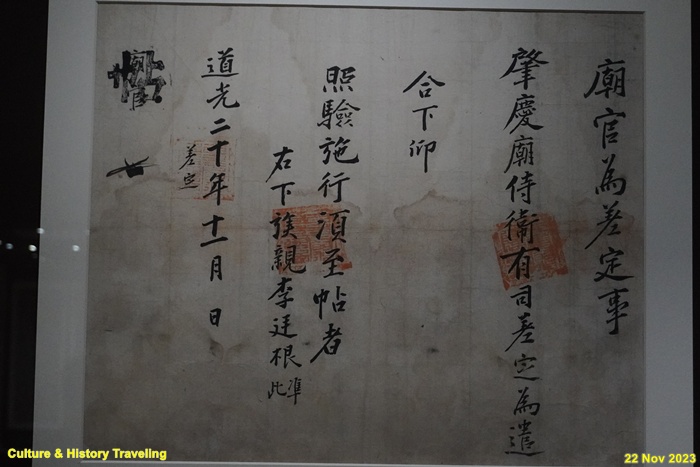 廟官為差定事
肇慶廟侍衛有司差定為遣
合下仰
照驗施行須至帖者
右下族親李廷根 此準
道光二十年十一月 日
差定
帖
Culture & History Traveling
22 Nov 2023